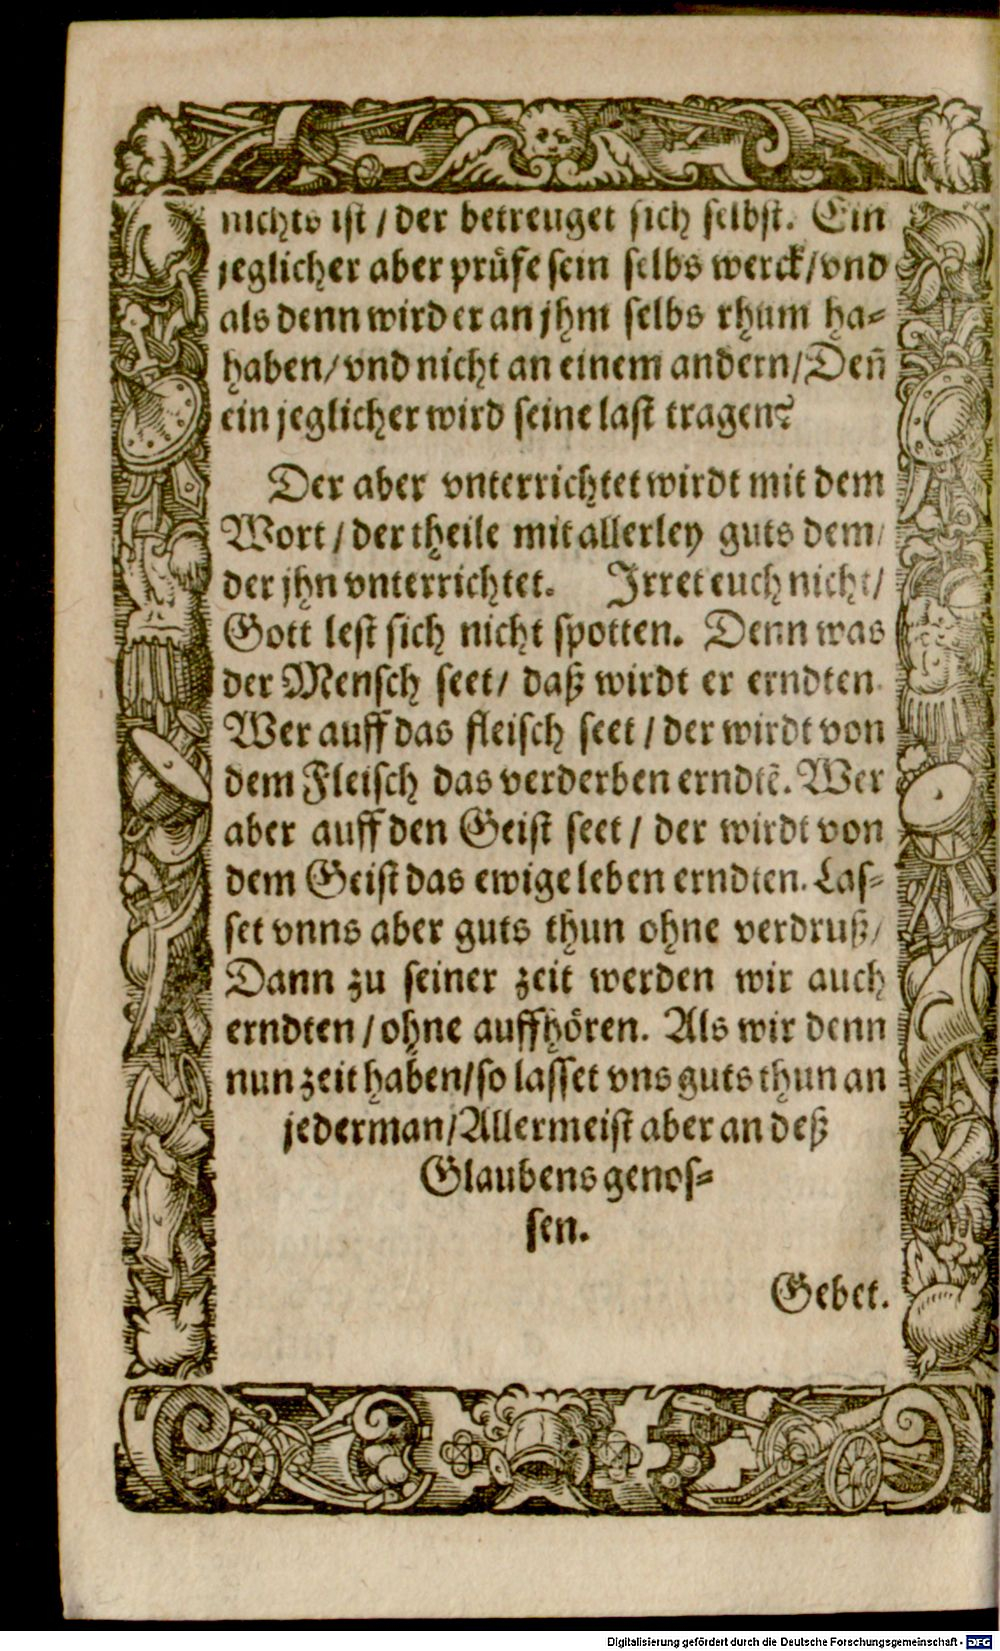 nichts ist / der betreuget sich selbst. Ein
jeglicher aber prüfe sein selbs werck/ vnd
als denn wird er an jhm selbs rhum ha-
haben/ vnd nicht an einem andern/ Deñ
ein jeglicher wird seine last tragen?
Der aber vnterrichtet wirdt mit dem
Wort / der theile mit allerley guts dem/
der jhn vnterrichtet. Irret euch nicht/
Gott lest sich nicht spotten. Denn was
der Mensch seet/ daß wirdt er erndten.
Wer auff das fleisch seet / der wirdt von
dem Fleisch das verderben erndtẽ. Wer
aber auff den Geist seet / der wirdt von
dem Geist das ewige leben erndten. Las-
set vnns aber guts thun ohne verdruß/
Dann zu seiner zeit werden wir auch
erndten / ohne auffhören. Als wir denn
nun zeit haben/ so lasset vns guts thun an
jederman/ Allermeist aber an deß
Glaubens genos-
sen.
Gebet.
Digitalisierung gefördert durch die Deutsche Forschungsgemeinschaft - DFG